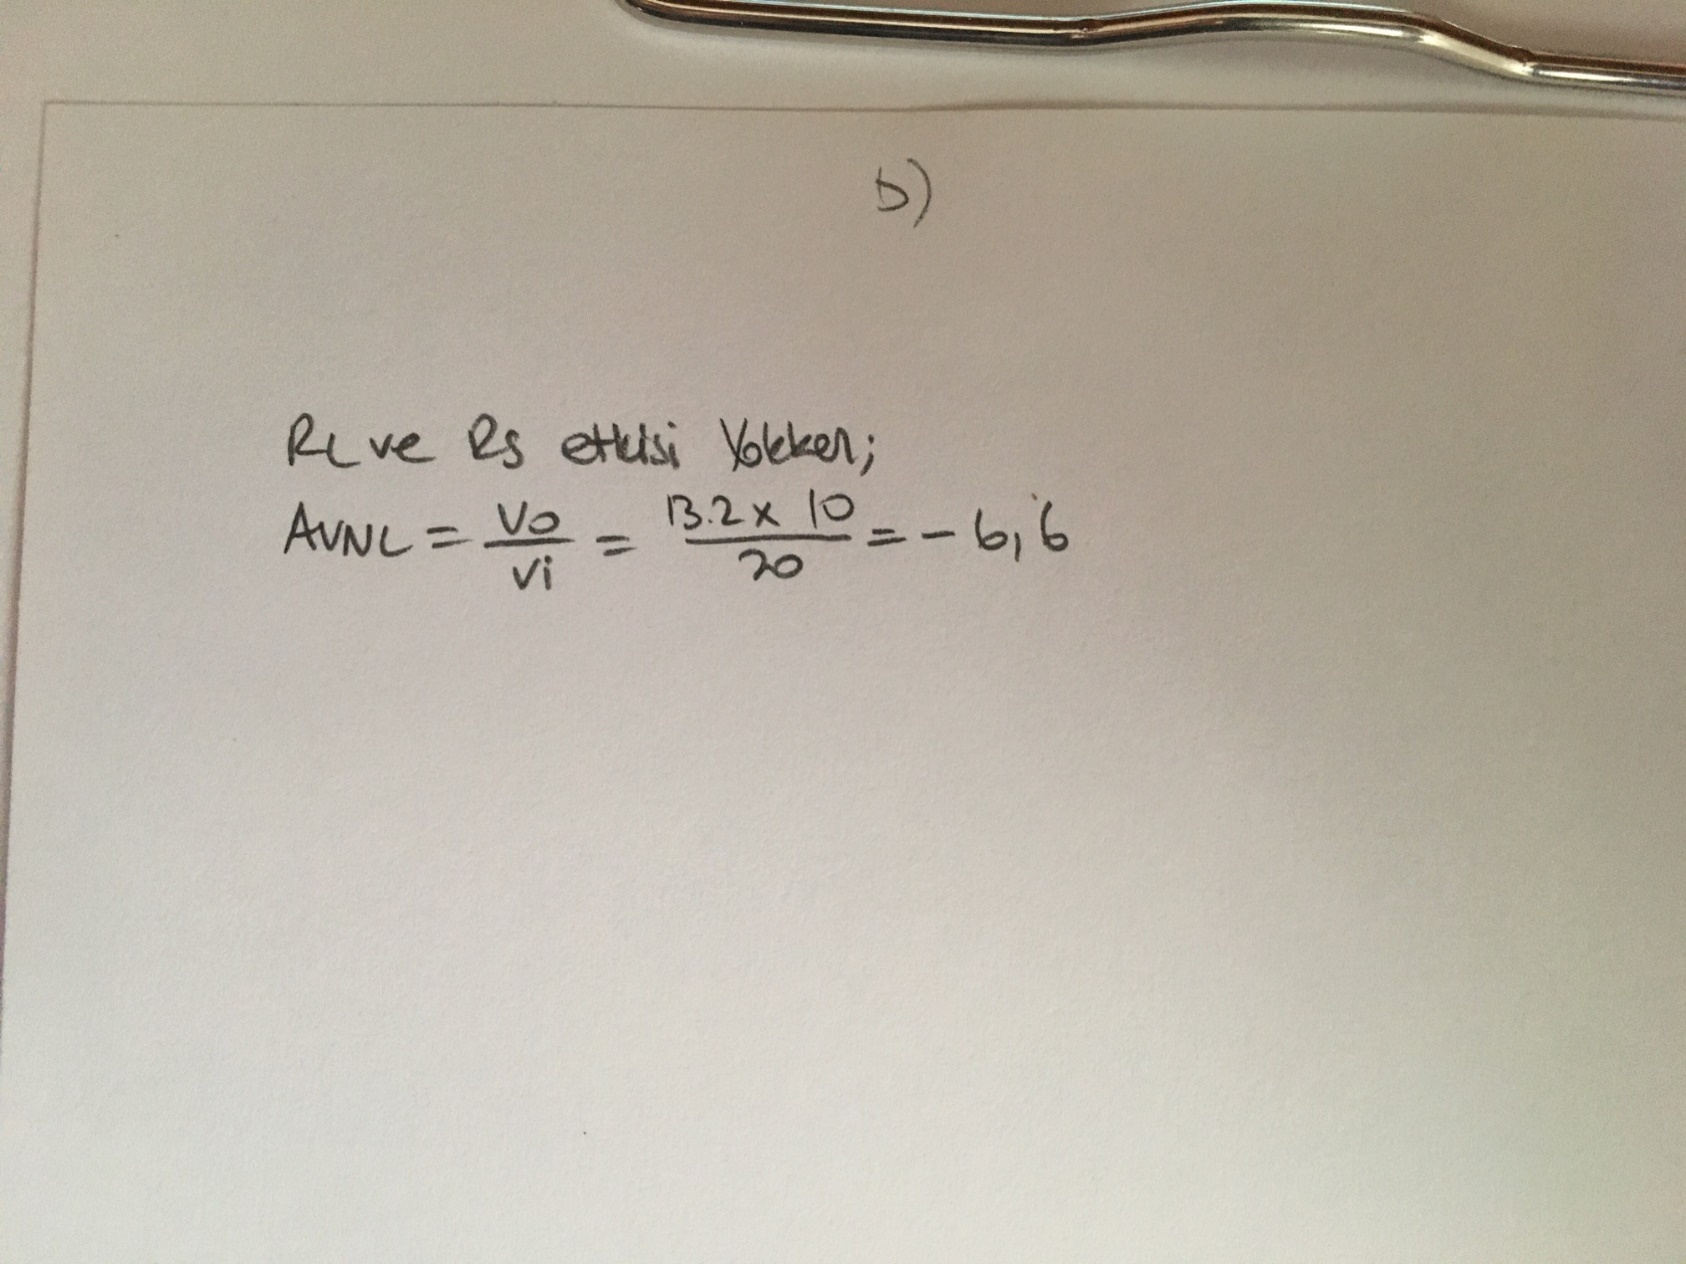 b)
RL ve Rs etkisi Yokken;
AVNL = Vo/Vi = 13.2 x 10/20 = - 6,6